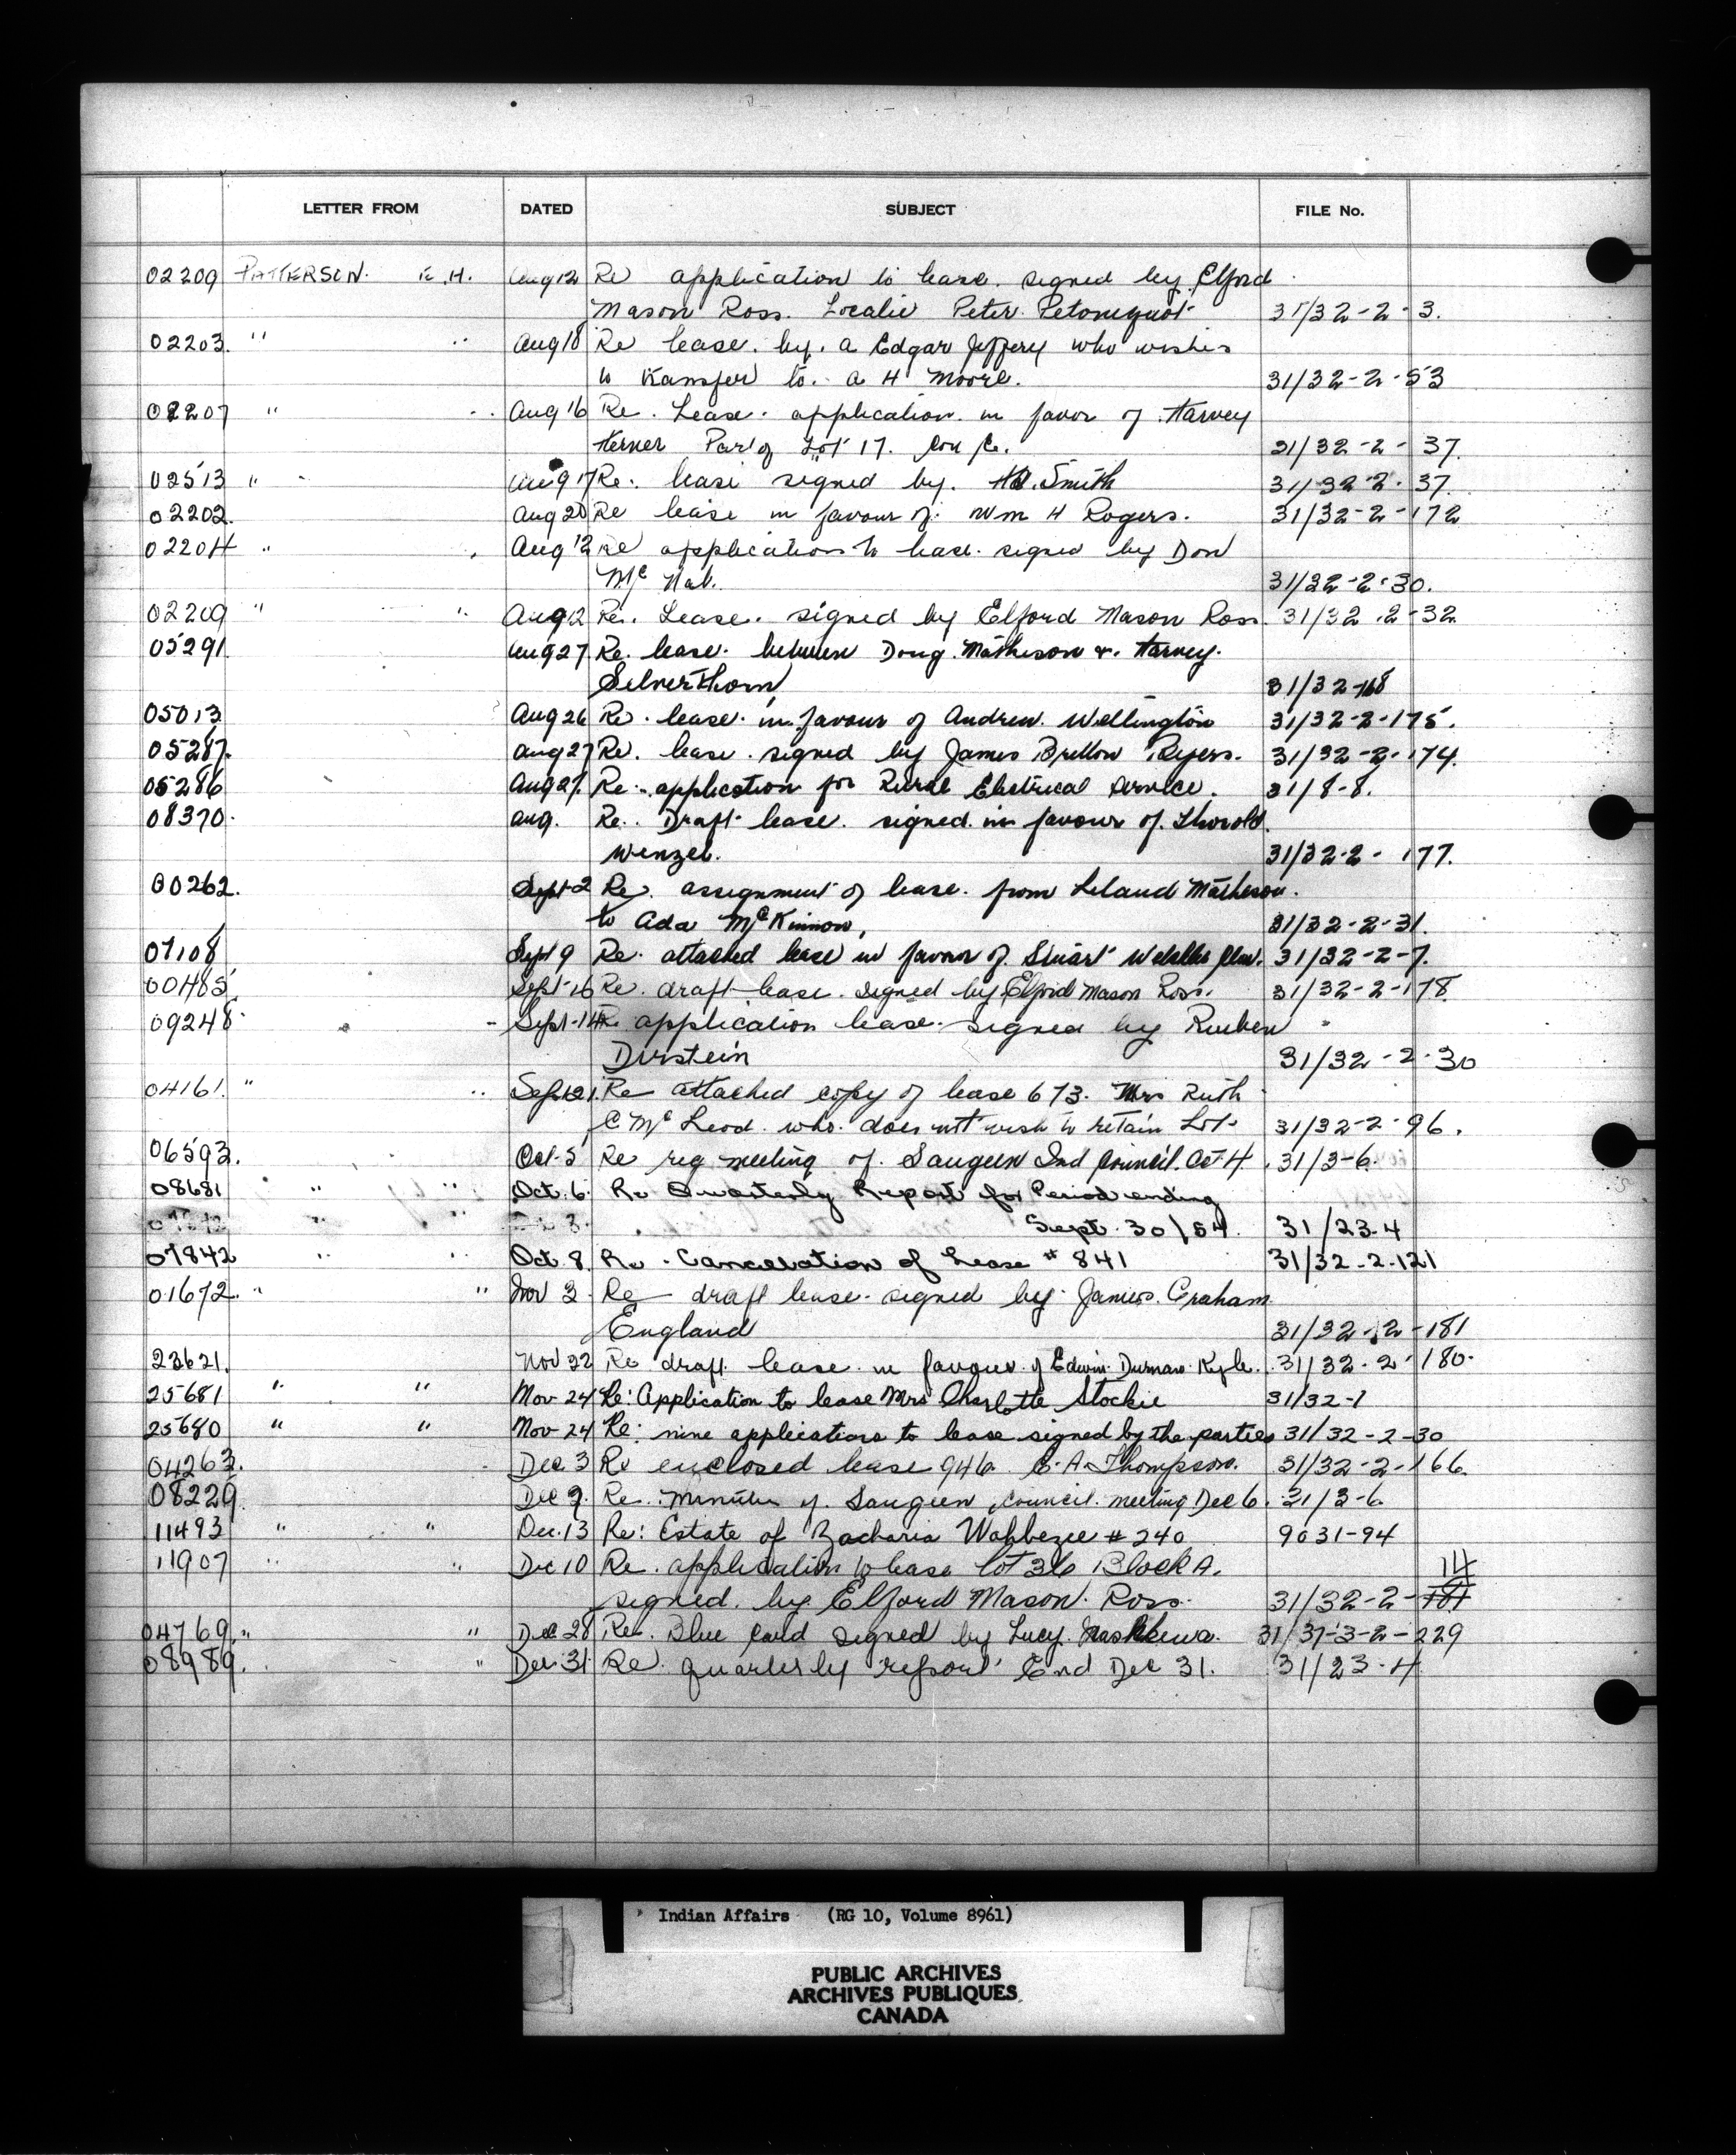 LETTER FROM DATED SUBJECT FILE No.
02209 PATTERSON. H. Aug 12 Re application to lease. signed by Elford
Mason Ross. Locatie Peter 31/32-2-3.
02203. " " Aug 18 Re lease. by. A Edgar Jeffery who wishes
to transfer to. A H Moore. 31/32-2-53
02207 " " Aug 16 Re. Lease. application in favor of Harvey
Part of Lot 17. Con 31/32-2-37.
02513 " Aug 17 Re. lease signed by. Smith 31/32-2-37.
02202. Aug 20 Re lease in favour of. Wm H Rogers. 31/32-2-172
02204 " Aug 12 Re application to lease signed by Don
Mc Nab. 31/32-2-30.
02209 " " Aug 12 Re. Lease. signed by Elford Mason Ross. 31/32-2-32.
05291 Aug 27. Re. lease. between Doug. Matheson &. Harvey.
Silverthorn 31/32-168
05013 Aug 26 Re. lease. in favour of Andrew Wellington 31/32-2-175.
05287. Aug 27 Re. lease. signed by James Britton 31/32-2-174.
05286 Aug 27. Re. application for Rural Electrical Service. 31/8-8.
08370. Aug. Re. Draft lease. signed in favour of. Thorold
Wenzel. 31/32-2-177.
00262. Sept 2 Re. assignment of lease. from Leland Matheson.
to Ada McKinnon, 31/32-2-31.
07108 Sept 9 Re. attached lease in favor of 31/32-2-7.
00485 Sept-16 Re. draft lease. signed by Elford Mason Ross. 31/32-2-178
09248. Sept-14 Re application lease. signed by Reuben
Durstein 31/32-2-30
04161. " " Sept 21. Re attached copy of lease 673. Mrs Ruth
C McLeod. who. does not wish to retain Lot. 31/32-2-96.
06593. Oct-5 Re reg meeting of. Saugeen Ind Council. Oct 4. 31/3-6.
08681 " " Oct. 6. Re Quarterly Report for Period ending
" " Sept. 30/54. 31/23-4
07842 " " Oct 8. Re. Cancellation of Lease # 841 31/32-2-121
01672. " " Nov 3 Re draft lease. signed by James. Graham
England 31/32-2-181
23621. Nov 22 Re draft lease in favour of Edwin Kyle. 31/32-2-180.
25681 " " Nov 24 Re: Application to lease Mrs Charlotte Stockie 31/32-1
25680 " " Nov 24 Re: nine applications to lease signed by the parties 31/32-2-30
04263. Dec 3 Re enclosed lease 946 A. Thompson. 31/32-2-166.
08229. Dec 9. Re. Minutes of Saugeen Council meeting Dec 6. 31/3-6.
11493 " " Dec. 13 Re: Estate of Zacharia Wahbezee # 240 9031-94
11907 " " Dec 10 Re. application to lease lot 36 Block A. 14
signed. by Elford Mason. Ross. 31/32-2-181
04769. " " Dec 28 Re. Blue Card signed by Lucy 31/37-3-2-229
08989. " Dec. 31 Re. quarterly report End Dec 31. 31/23-4
Indian Affairs (RG 10, Volume 8961)
PUBLIC ARCHIVES
ARCHIVES PUBLIQUES
CANADA